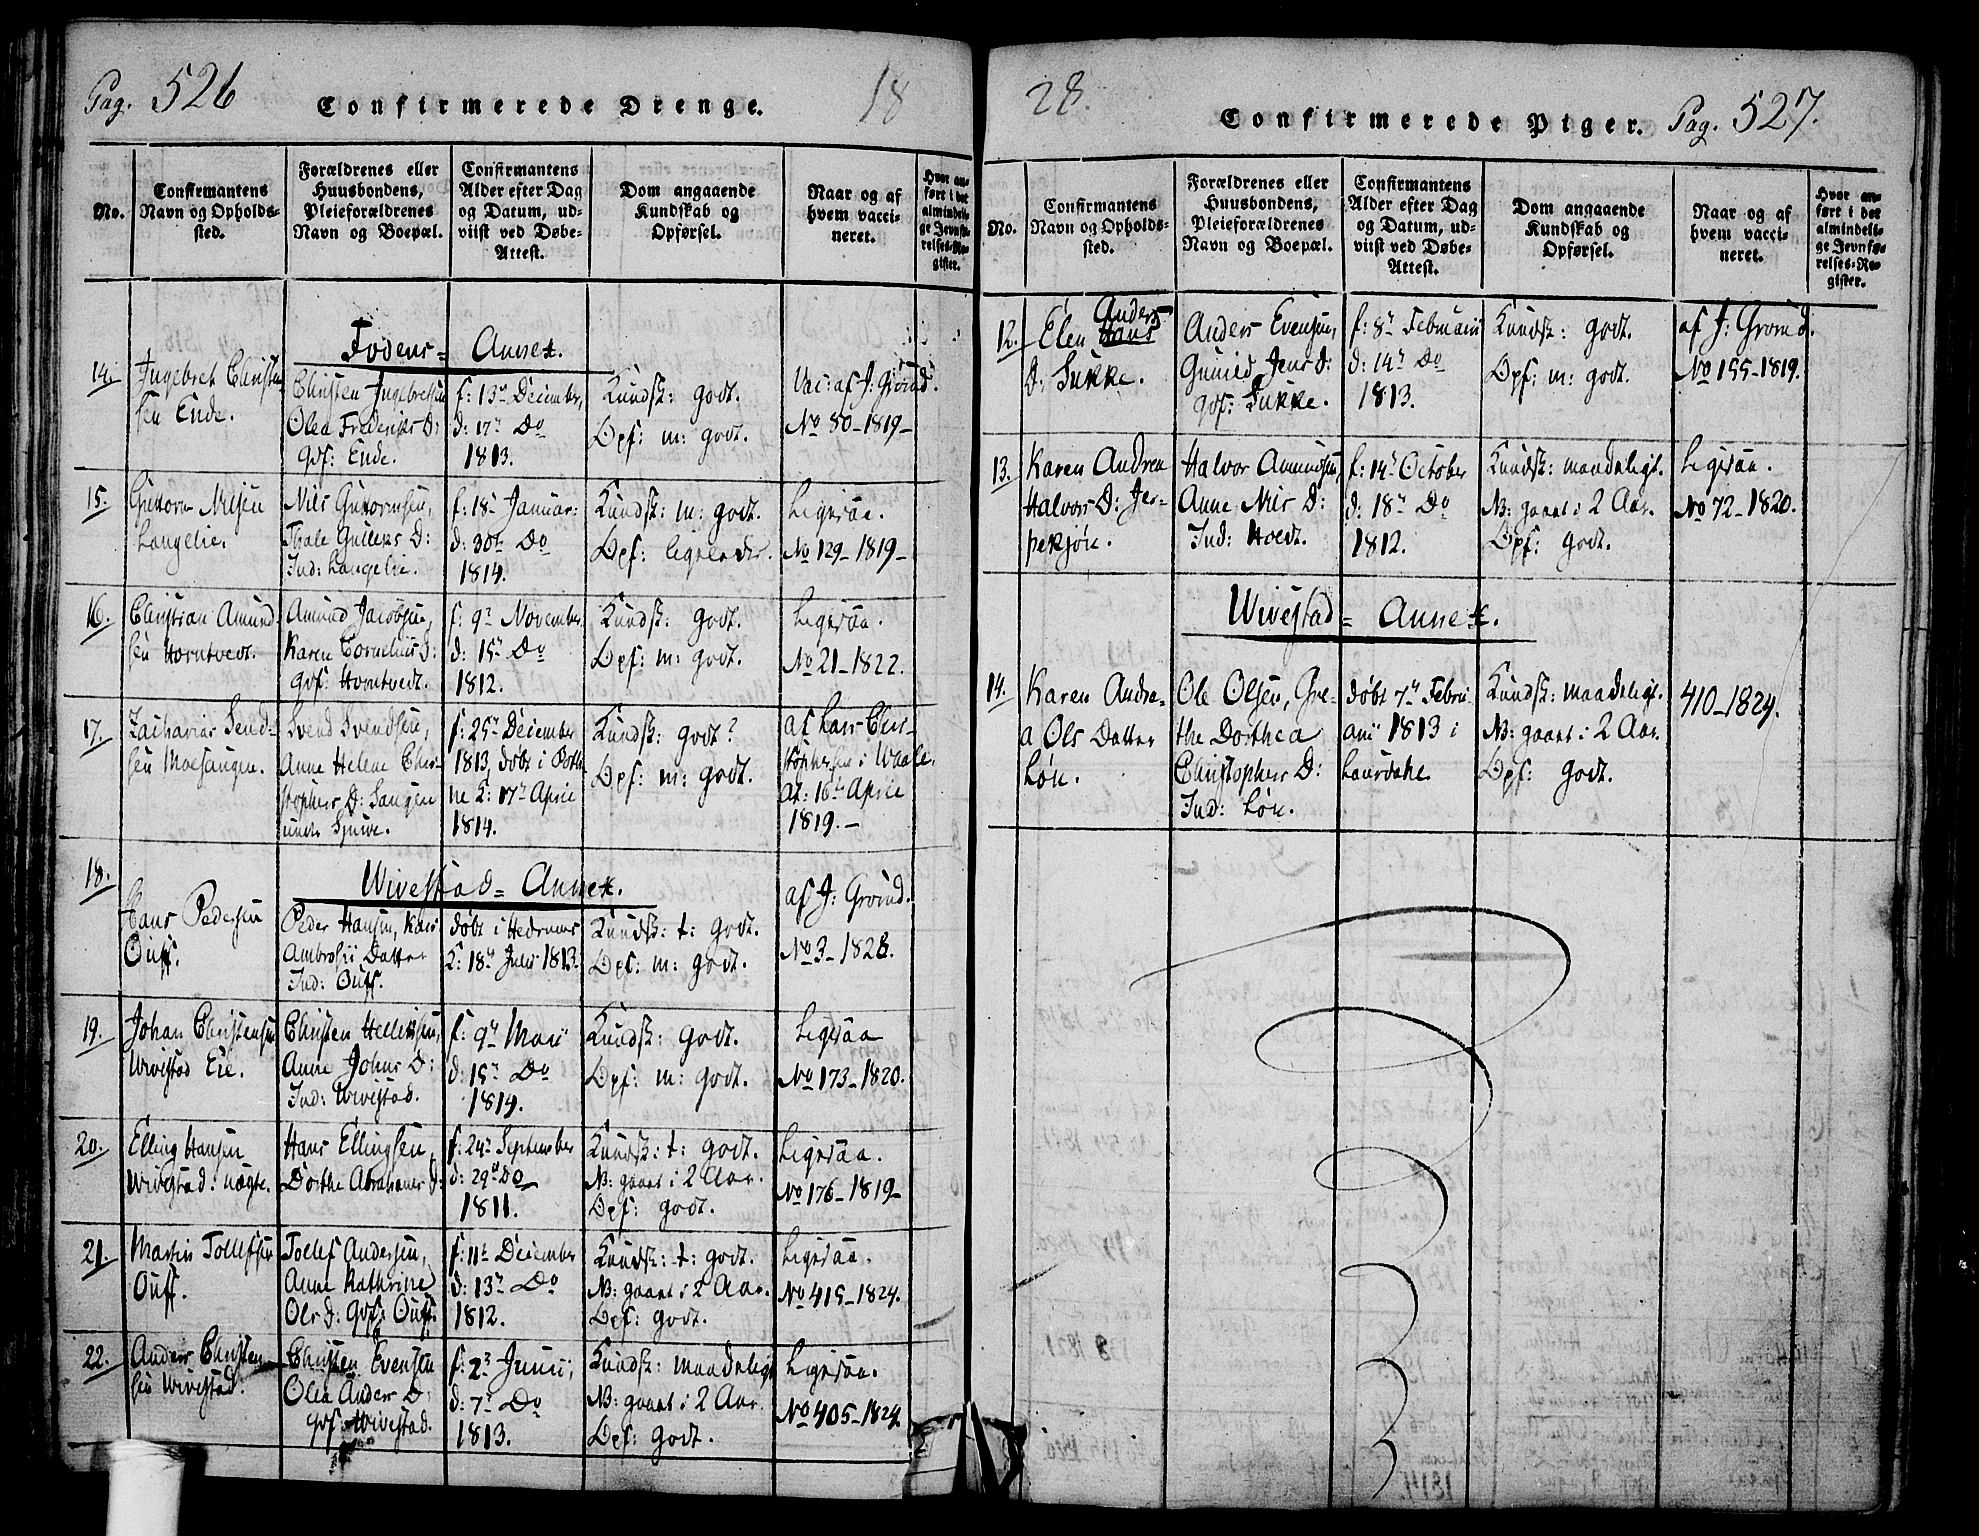 Pag. 526
Confirmerede Drenge.
18
No.
Confirmantens Navn og Opholds-sted.
Forældrenes eller Huusbondens, Pleieforældrenes Navn og Boepæl.
Confirmantens Alder efter Dag og Datum, ud-viist ved Døbe-Attest.
Dom angaaende Kundskab og Opførsel.
Naar og af hvem vacci-neret.
Hvor an-ført i det almindeli-ge Jevnfø-relses-Re-gister.
Fodens= Annex.
14.
Ingebret Christen
sen Ende.
Christen Ingebretsen
Olea Frederiks D:
gdf: Ende.
f: 13de December,
d: 17de Do
1813.
Kundsk: godt.
Opf: m: godt.
Vac: af J: Grønd.
No 80-1819-
15.
Guttorm Nilsen
Langelie.
Nils Guttormsen,
Thale Gulleks D:
Ind: Langelie.
f: 18de Januar:
d: 30te Do
1814.
Kundsk: m: godt.
Opf: ligeledes.
Ligesaa.
No 129-1819-
16.
Christian Amund
sen Horntvedt.
Amund Jacobsen,
Karen Cornelius D:
gdf: Horntvedt.
f: 9de November
d: 15de Do
1812.
Kundsk: godt.
Opf: m: godt.
Ligesaa.
No 21-1822.
17.
Zacharias Send-
sen Moesangen.
Svend Svendsen,
Anne Helene Chri-
stophers D: Sangen
under
f: 25de December
1813, døbt i Both
ne K: 17de April
1814.
Kundsk: godt?
Opf: m: godt.
af Lars Chri-
stophersen i Waale.
At: 16de April
1819.-
Wivestad= Annex.
18.
Hans Pedersen
Oufs.
Peder Hansen, Kari
Ambrosii Datter
Ind: Oufs.
døbt i Hedrums
K: 18de Juli 1813.
Kundsk: t: godt.
Opf: m: godt.
af J: Grønd.
No 3-1828.
19.
Johan Christensen
Wivestad Eie.
Christen Helliksen,
Anne Johns D:
Ind: Wivestad.
f: 9de Maii
d: 15de Do
1814.
Kundsk: godt.
Opf: m: godt.
Ligesaa
No 173-1820.
20.
Elling Hansen
Wivestad: nøgte.
Hans Ellingsen,
Dorthe Abrahams D:
f: 24de September
d: 29de Do
1811.
Kundsk: t: godt.
NB: gaaet i 2 Aar.
Opf: godt.
Ligesaa.
No 176-1819-
21.
Martin Tollefsen
Oufs.
Tollef Andersen,
Anne Kathrine
Ols D: gdf: Oufs.
f: 11te December
d: 13de Do
1812.
Kundsk: t: godt.
NB: gaaet i 2 Aar.
Opf: godt.
Ligesaa.
No 415-1824.
22.
Anders Christen
sen Wivestad.
Christen Evensen
Olea Anders D:
gdf: Wivestad.
f: 2den Junii;
d: 7de Do
1813.
Kundsk: maadeligt
NB: gaaet i 2 Aar.
Opf: godt.
Ligesaa.
No 405-1824
28.
Confirmerede Piger.
Pag. 527.
No.
Confirmantens Navn og Opholds-sted.
Forældrenes eller Huusbondens, Pleieforældrenes Navn og Boepæl.
Confirmantens Alder efter Dag og Datum, ud-viist ved Døbe-Attest.
Dom angaaende Kundskab og Opførsel.
Naar og af hvem vacci-neret.
Hvor an-ført i det almindeli-ge Jevnfø-relses-Re-gister.
12.
Anders
Elen Hans
D: Sukke.
Anders Evensen,
Gunild Jens D:
gdf: Sukke.
f: 8de Februarii
d: 14de Do
1813.
Kundsk: godt.
Opf: m: godt.
af J: Grønd.
No 155-1819.
13.
Karen Andrea
Halvors D: Jer-
pekjøn.
Halvor Amundsen,
Anne Nils D:
Ind: Hoedt.
f: 14de October
d: 18de Do
1812.
Kundsk: maadeligt.
NB: gaaet i 2 Aar.
Opf: godt.
Ligesaa.
No 72-1820.
Wivestad= Annex.
14.
Karen Andre-
a Ols Datter
Løn.
Ole Olsen, Gre-
the Dorthea
Christophers D:
Ind: Løn.
døbt 7de Febru
arii 1813 i
Laurdahl
Kundsk: maadeligt.
NB: gaaet i 2 Aar.
Opf: godt.
410-1824.